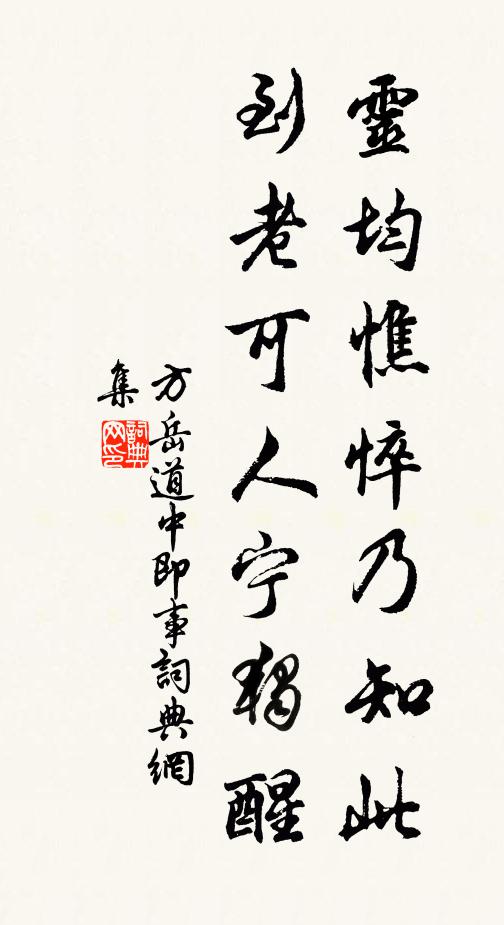 靈均憔悴乃知此
到老可人宁獨醒
方岳道中即事詞典網
集
詞典網印